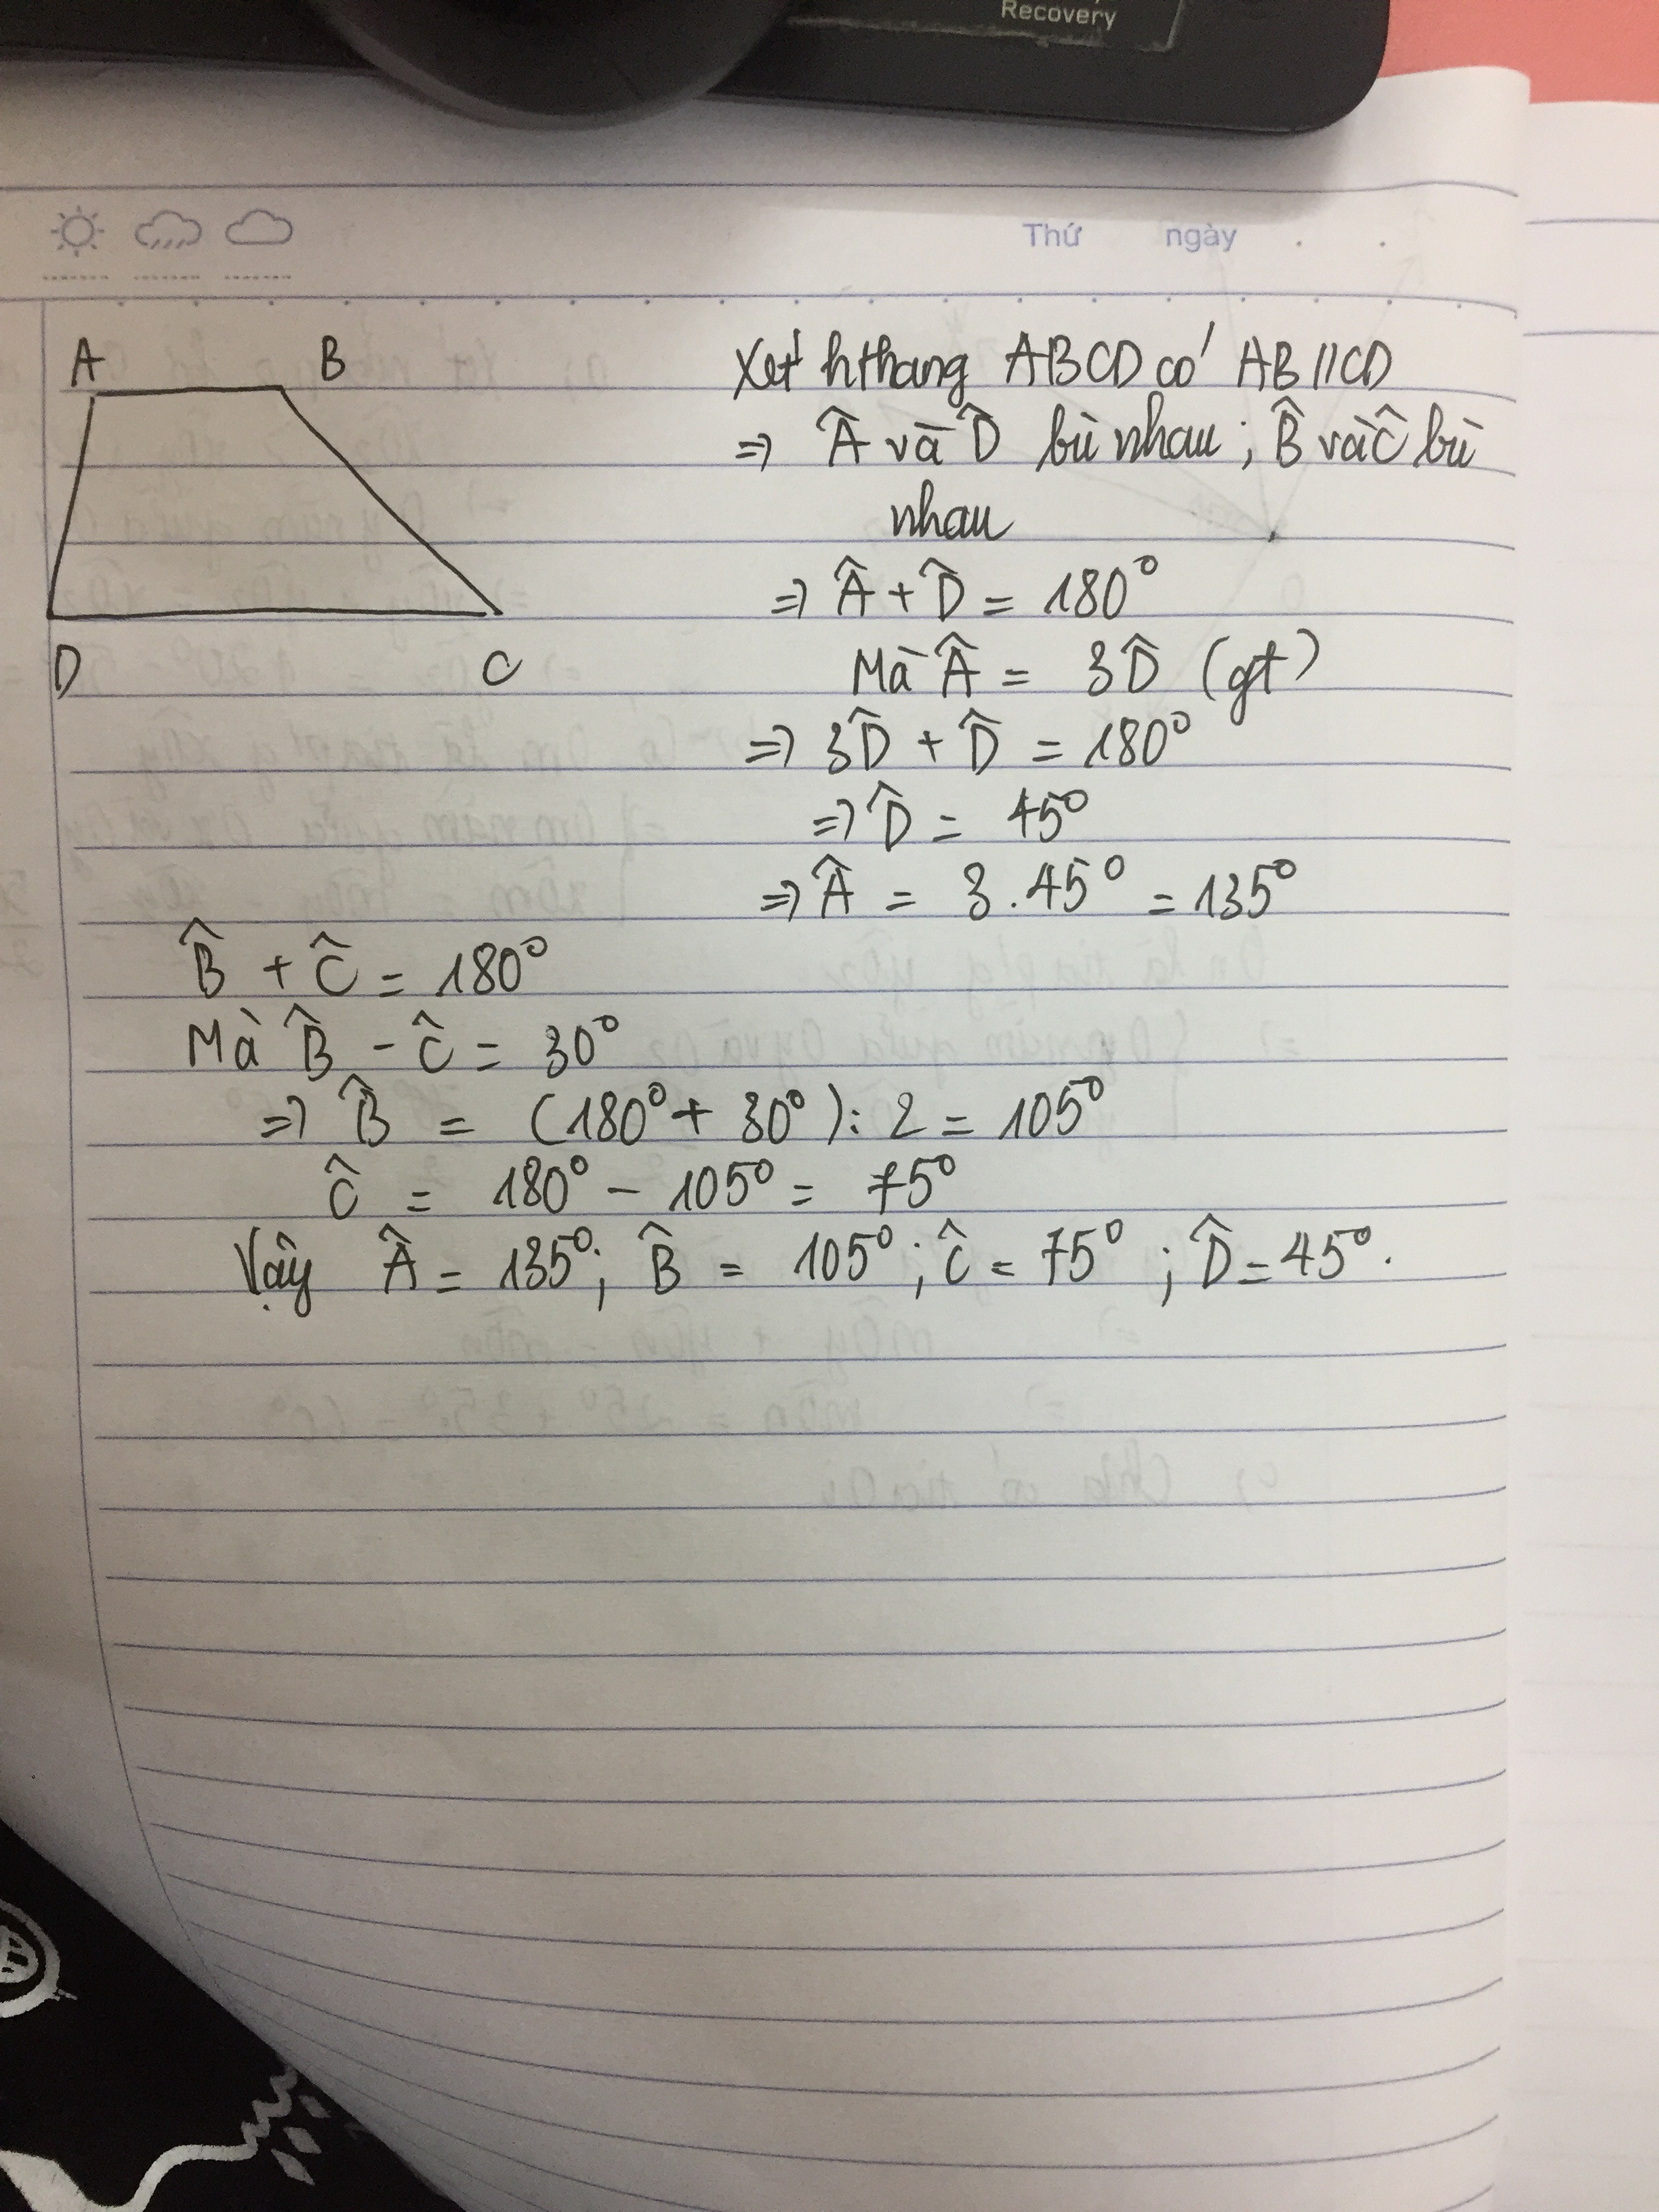 Recovery
Thứ ngày . .
A B
D C
Xét hthang ABCD có AB // CD
=> Â và D̂ bù nhau ; B̂ và Ĉ bù
nhau
=> Â + D̂ = 180°
Mà Â = 3D̂ (gt)
=> 3D̂ + D̂ = 180°
=> D̂ = 45°
=> Â = 3.45° = 135°
B̂ + Ĉ = 180°
Mà B̂ - Ĉ = 30°
=> B̂ = (180° + 30°) : 2 = 105°
Ĉ = 180° - 105° = 75°
Vậy Â = 135°; B̂ = 105° ; Ĉ = 75° ; D̂ = 45°.